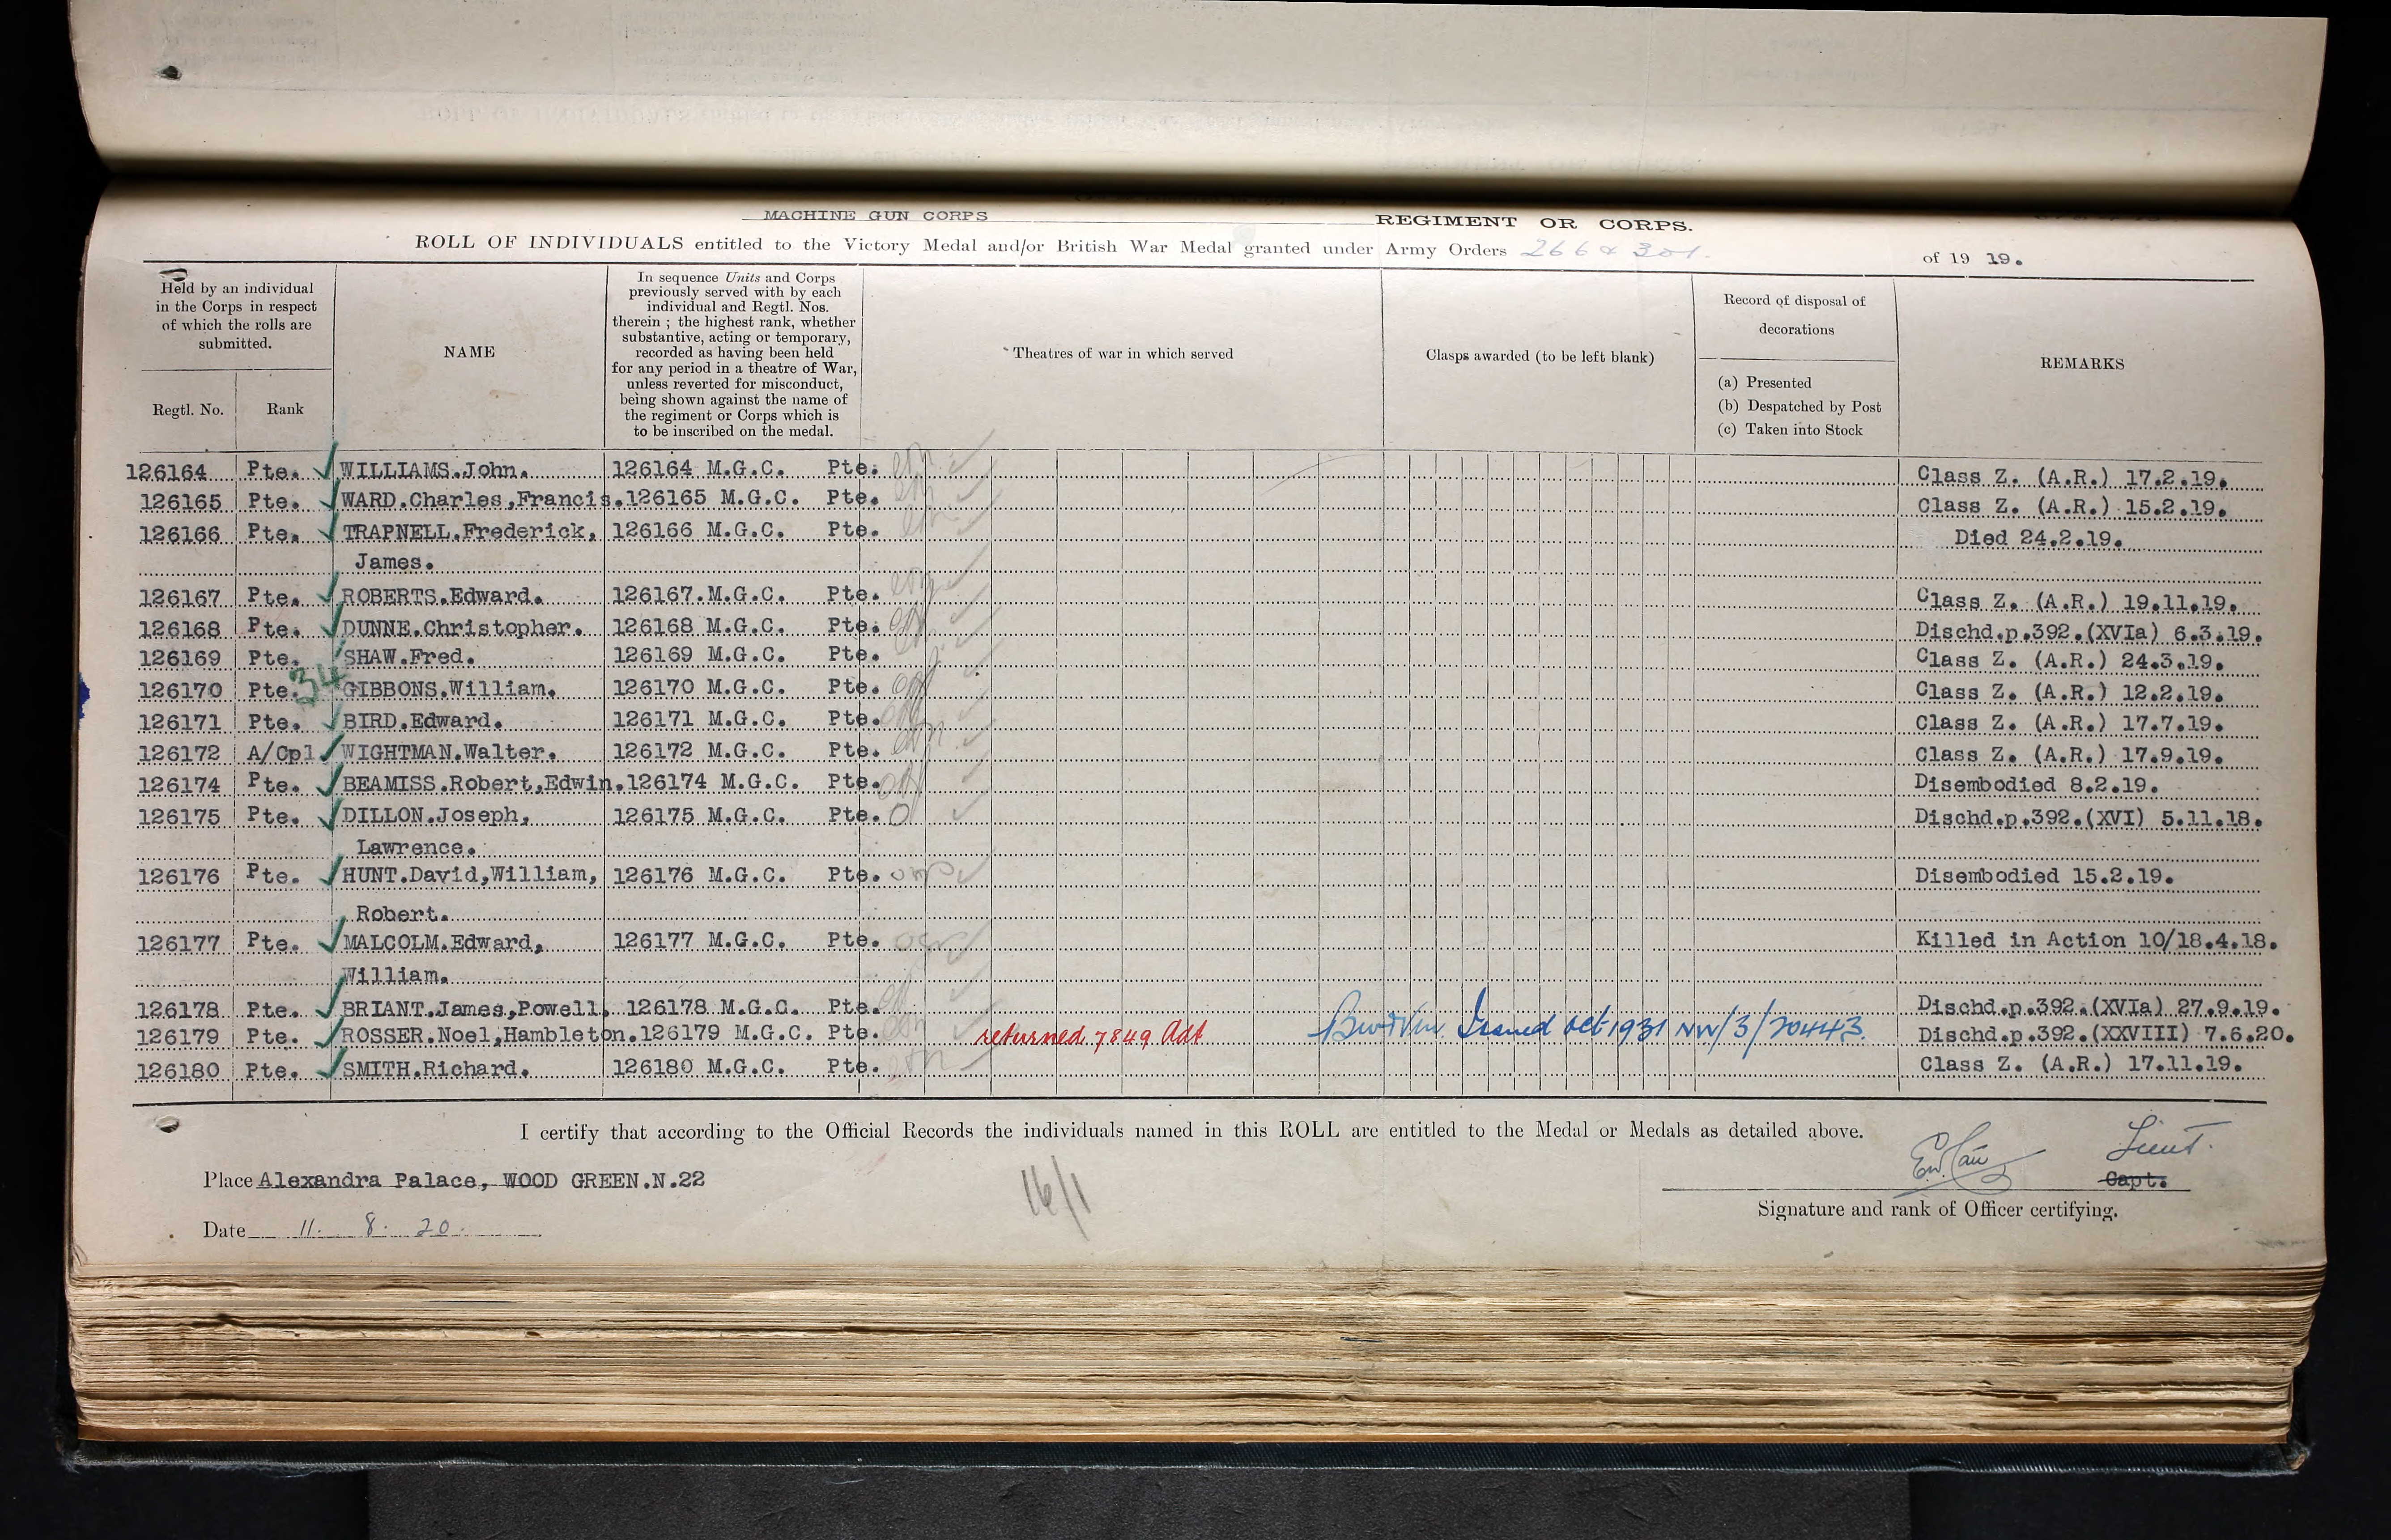 MACHINE GUN CORPS REGIMENT OR CORPS.
ROLL OF INDIVIDUALS entitled to the Victory Medal and/or British War Medal granted under Army Orders 266 & 301. of 19 19.
Held by an individual
in the Corps in respect
of which the rolls are
submitted.
Regtl. No. Rank
NAME
In sequence Units and Corps
previously served with by each
individual and Regtl. Nos.
therein ; the highest rank, whether
substantive, acting or temporary,
recorded as having been held
for any period in a theatre of War,
unless reverted for misconduct,
being shown against the name of
the regiment or Corps which is
to be inscribed on the medal.
Theatres of war in which served
Clasps awarded (to be left blank)
Record of disposal of
decorations
(a) Presented
(b) Despatched by Post
(c) Taken into Stock
REMARKS
126164 Pte. WILLIAMS.John. 126164 M.G.C. Pte. Class Z. (A.R.) 17.2.19.
126165 Pte. WARD.Charles,Francis. 126165 M.G.C. Pte. Class Z. (A.R.) 15.2.19.
126166 Pte. TRAPNELL.Frederick, 126166 M.G.C. Pte. Died 24.2.19.
James.
126167 Pte. ROBERTS.Edward. 126167.M.G.C. Pte. Class Z. (A.R.) 19.11.19.
126168 Pte. DUNNE.Christopher. 126168 M.G.C. Pte. Dischd.p.392.(XVIa) 6.3.19.
126169 Pte. SHAW.Fred. 126169 M.G.C. Pte. Class Z. (A.R.) 24.3.19.
34
126170 Pte. GIBBONS.William. 126170 M.G.C. Pte. Class Z. (A.R.) 12.2.19.
126171 Pte. BIRD.Edward. 126171 M.G.C. Pte. Class Z. (A.R.) 17.7.19.
126172 A/Cpl WIGHTMAN.Walter. 126172 M.G.C. Pte. Class Z. (A.R.) 17.9.19.
126174 Pte. BEAMISS.Robert,Edwin. 126174 M.G.C. Pte. Disembodied 8.2.19.
126175 Pte. DILLON.Joseph, 126175 M.G.C. Pte. Dischd.p.392.(XVI) 5.11.18.
Lawrence.
126176 Pte. HUNT.David,William, 126176 M.G.C. Pte. Disembodied 15.2.19.
Robert.
126177 Pte. MALCOLM.Edward, 126177 M.G.C. Pte. Killed in Action 10/18.4.18.
William.
126178 Pte. BRIANT.James,Powell. 126178 M.G.C. Pte. Dischd.p.392.(XVIa) 27.9.19.
126179 Pte. ROSSER.Noel,Hambleton. 126179 M.G.C. Pte. returned 7849 Adt Issued Oct 1931 NW/3/20443. Dischd.p.392.(XXVIII) 7.6.20.
126180 Pte. SMITH.Richard. 126180 M.G.C. Pte. Class Z. (A.R.) 17.11.19.
I certify that according to the Official Records the individuals named in this ROLL are entitled to the Medal or Medals as detailed above.
Place Alexandra Palace, WOOD GREEN.N.22
16/1
Lieut.
Capt.
Signature and rank of Officer certifying.
Date 11. 8. 20.